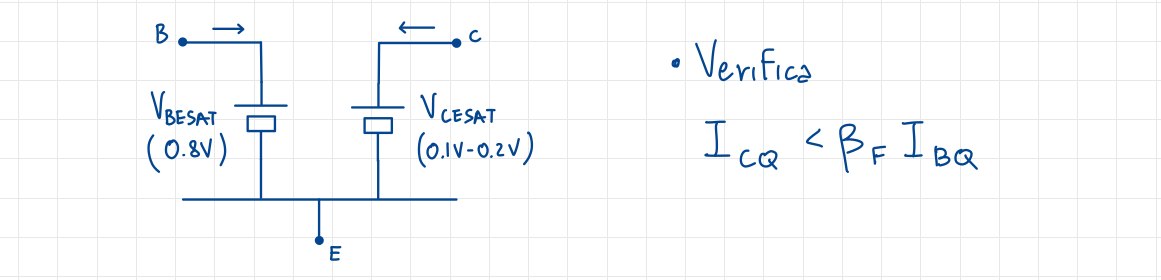 B
C
V_BESAT
(0.8V)
V_CESAT
(0.1V-0.2V)
E
• Verifica
I_CQ < β_F I_BQ